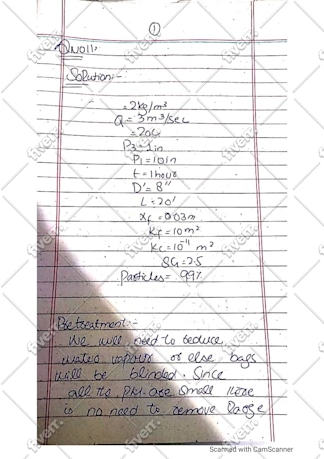 ①
QNO11:
Solution:-
= 2kg/m³
Q = 3m³/sec
= 20c
P3 = 1in
P1 = 10in
t = 1hour
D' = 8"
L = 20'
Xf = 0.03m
Kf = 10m²
Kc = 10⁻¹¹ m²
SG = 2.5
Particles = 99%
Pretreatment:-
We will need to reduce
water vapours or else bags
will be blinded. Since
all the are small there
is no need to remove large
Scanned with CamScanner
fiverr.